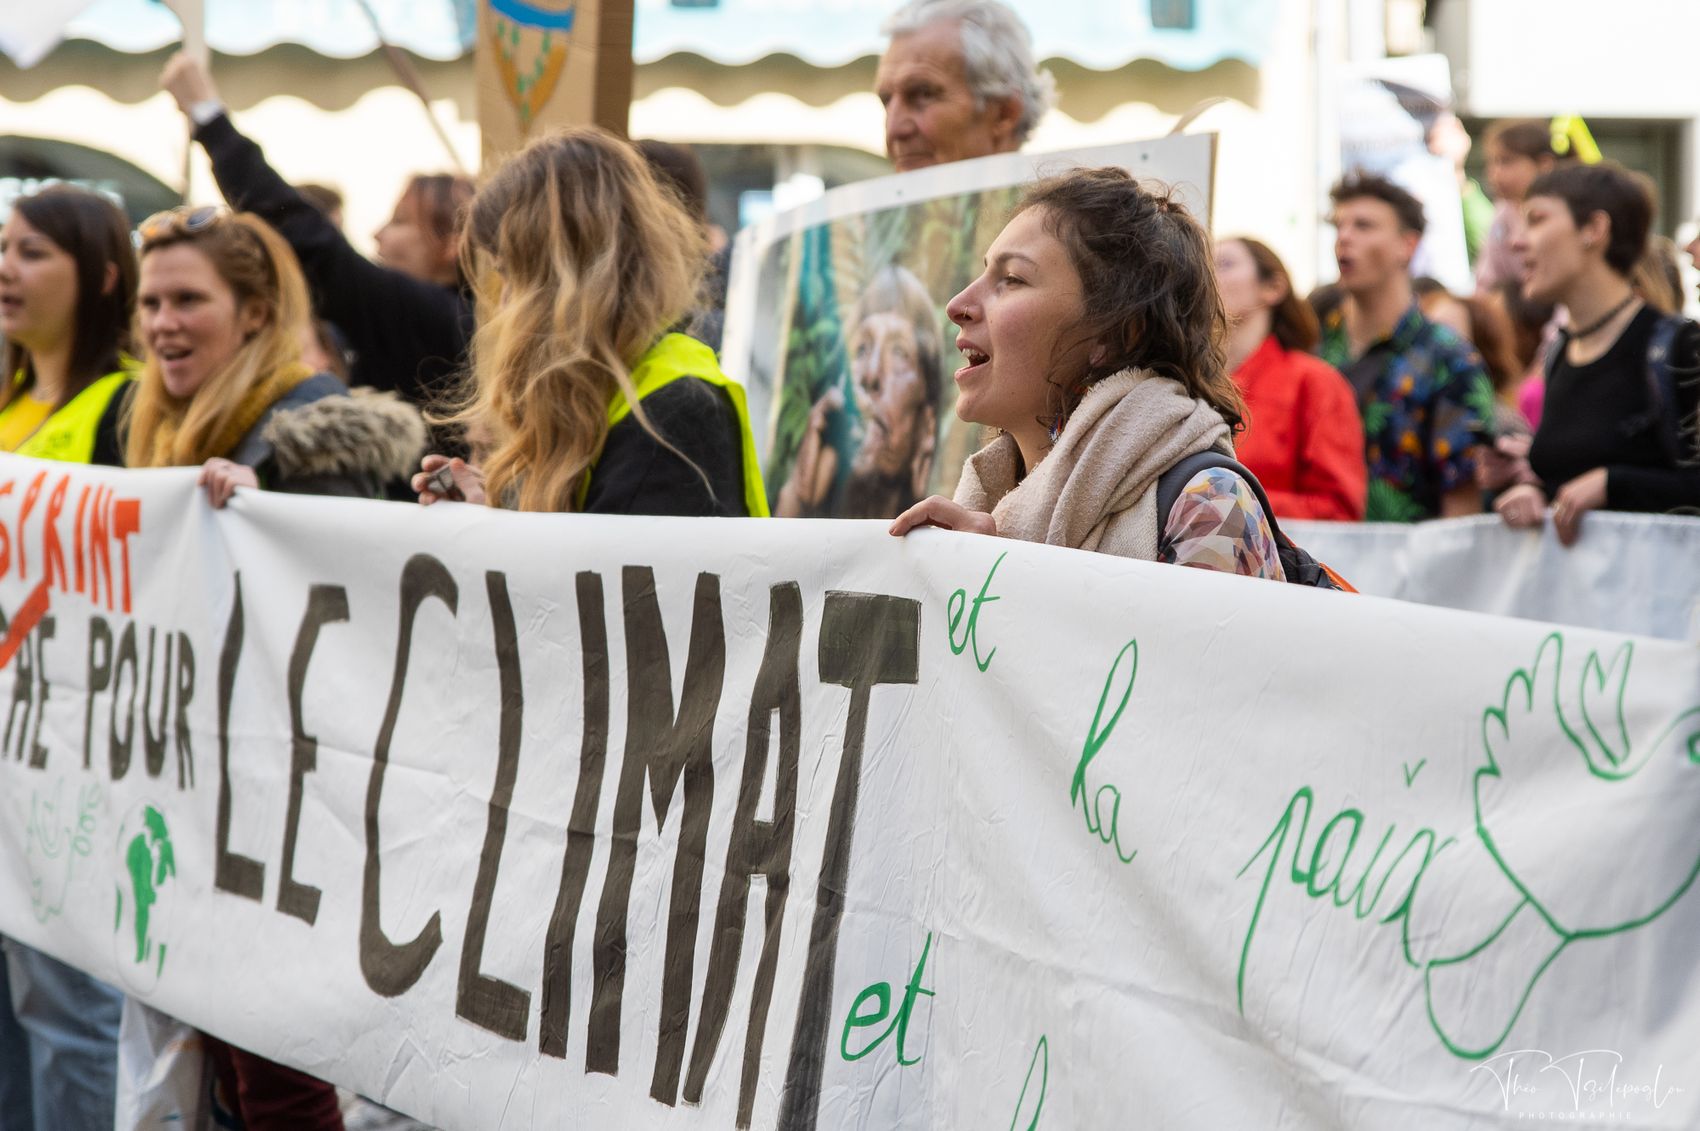 SPRINT
POUR
LE CLIMAT
et
la
paix
et
Théo Tzélépoglou
PHOTOGRAPHIE